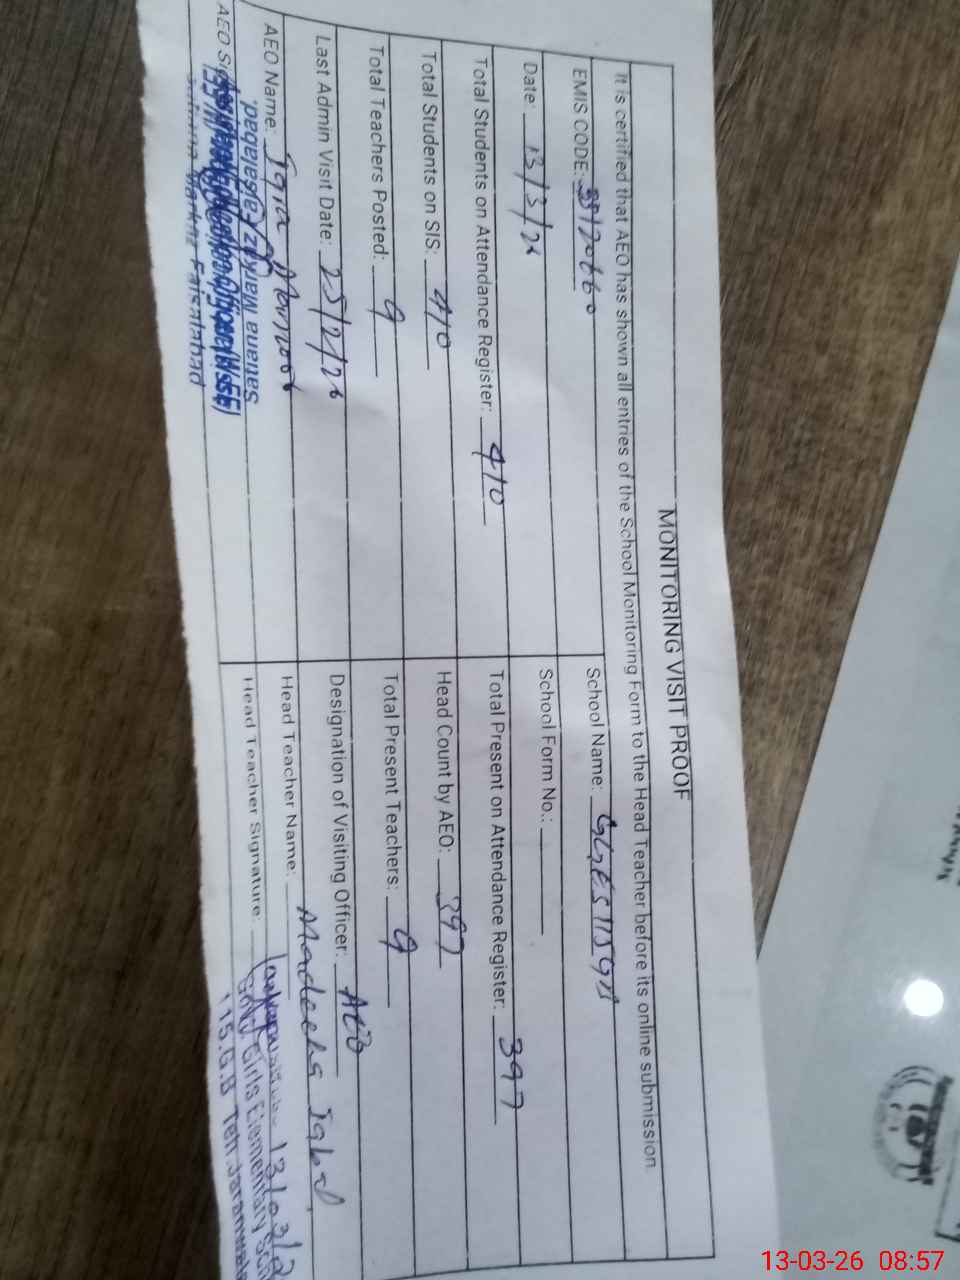 MONITORING VISIT PROOF
It is certified that AEO has shown all entries of the School Monitoring Form to the Head Teacher before its online submission.
EMIS CODE: 33120660 School Name: GGES 115 GB
Date: 13/3/26 School Form No.:
Total Students on Attendance Register: 410 Total Present on Attendance Register: 397
Total Students on SIS: 410 Head Count by AEO: 397
Total Teachers Posted: 9 Total Present Teachers: 9
Last Admin Visit Date: 25/2/26 Designation of Visiting Officer: AEO
AEO Name: Head Teacher Name: Madeeha Iqbal
AEO Head Teacher Signature:
13/03/2
Govt Girls Elementary
115.G.B Teh
Markaz Faisalabad.
Markaz Faisalabad
13-03-26 08:57